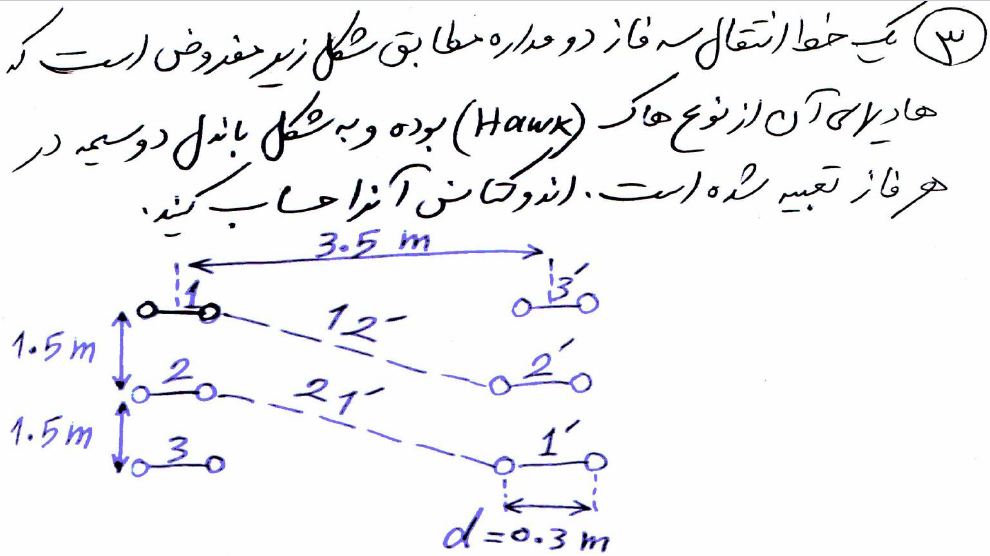 ۳ یک خط انتقال سه فاز دو مداره مطابق شکل زیر مفروض است که
هادیهای آن از نوع هاک (Hawk) بوده و به شکل باندل دو سیمه در
هر فاز تعبیه شده است. اندوکتانس آنرا حساب کنید.
3.5 m
1 3′
12′
1.5 m
2 21′ 2′
1.5 m
3 1′
d = 0.3 m